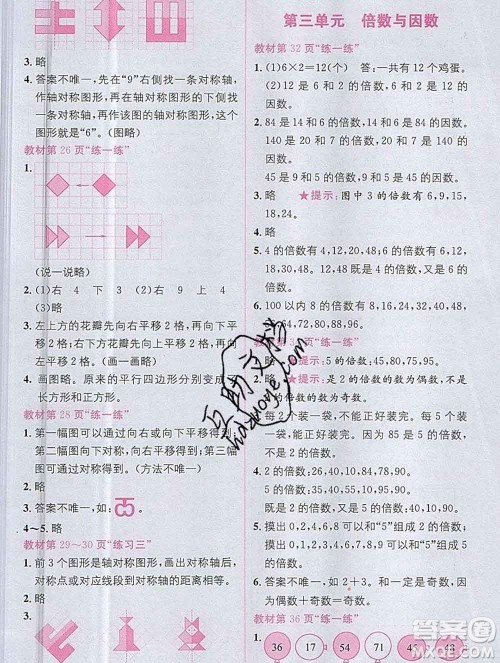 3. 略
4. 答案不唯一,先在“9”右侧找一条对称轴,
作轴对称图形,再在轴对称图形的下侧找一
条对称轴,再作该图的轴对称图形,这个
图形就是“6”。(图略)
教材第 26 页“练一练”
1.
(说一说略)
2. (1)右 4 下 3 (2)右 9 上 4
(3)略
3. 左上方的花瓣先向右平移 2 格,再向下平移
2 格。(画一画略)
4. 画图略。原来的平行四边形分别变成了
长方形和正方形。
教材第 28 页“练一练”
1. 第一幅图可以通过向右或向下平移得到;
第二幅图可以通过向右平移得到;第三幅
图可以通过对称得到。(方法不唯一)
2. 略
3. 答案不唯一,如:
4~5. 略
教材第 29~30 页“练习三”
1. 前 3 个图形是轴对称图形,画出对称轴后,
对称点或对应线段到对称轴的距离相等。
第三单元 倍数与因数
教材第 32 页“练一练”
1. (1)6×2=12(个) 答:一共有 12 个鸡蛋。
(2)12 是 6 和 2 的倍数,6 和 2 是 12 的
因数。
2. 84 是 14 和 6 的倍数,14 和 6 是 84 的因数。
100 是 20 和 5 的倍数,20 和 5 是 100 的
因数。
45 是 9 和 5 的倍数,9 和 5 是 45 的因数。
3. 略 ★提示:图中 3 的倍数有 6,9,15,
18,24。
4. 略
5. 4 的倍数有 4,12,20,48;6 的倍数有
12,18,48,54;12,48 既是 4 的倍数,又是 6
的倍数。
6. 100 以内 8 的倍数有 8,16,24,32,40,48,
56,64,72,80,88,96。
1. 略 ★提示:5 的倍数有:45,80,75,95。
2. 略 ★提示:是 2 的倍数的数为偶数,不
是 2 的倍数的数为奇数。
3. 每 2 个装一袋,不能正好装完。每 5 个装
一袋,能正好装完。
4. 2 的倍数:26,40,84,20,78,90。
5 的倍数:35,40,15,20,90,95。
既是 2 的倍数,又是 5 的倍数:40,20,90。
5. 摸出 0,2,4,8 可以和“5”组成 2 的倍数;
摸出 0 可以和“5”组成 5 的倍数。
6. 答案不唯一,如 2+3。和一定是奇数,因为
偶数+奇数=奇数。
教材第 36 页“练一练”
1. 36 17 54 71 45 48
互助文档
huzuoye.com
答案圈
MXQE.COM